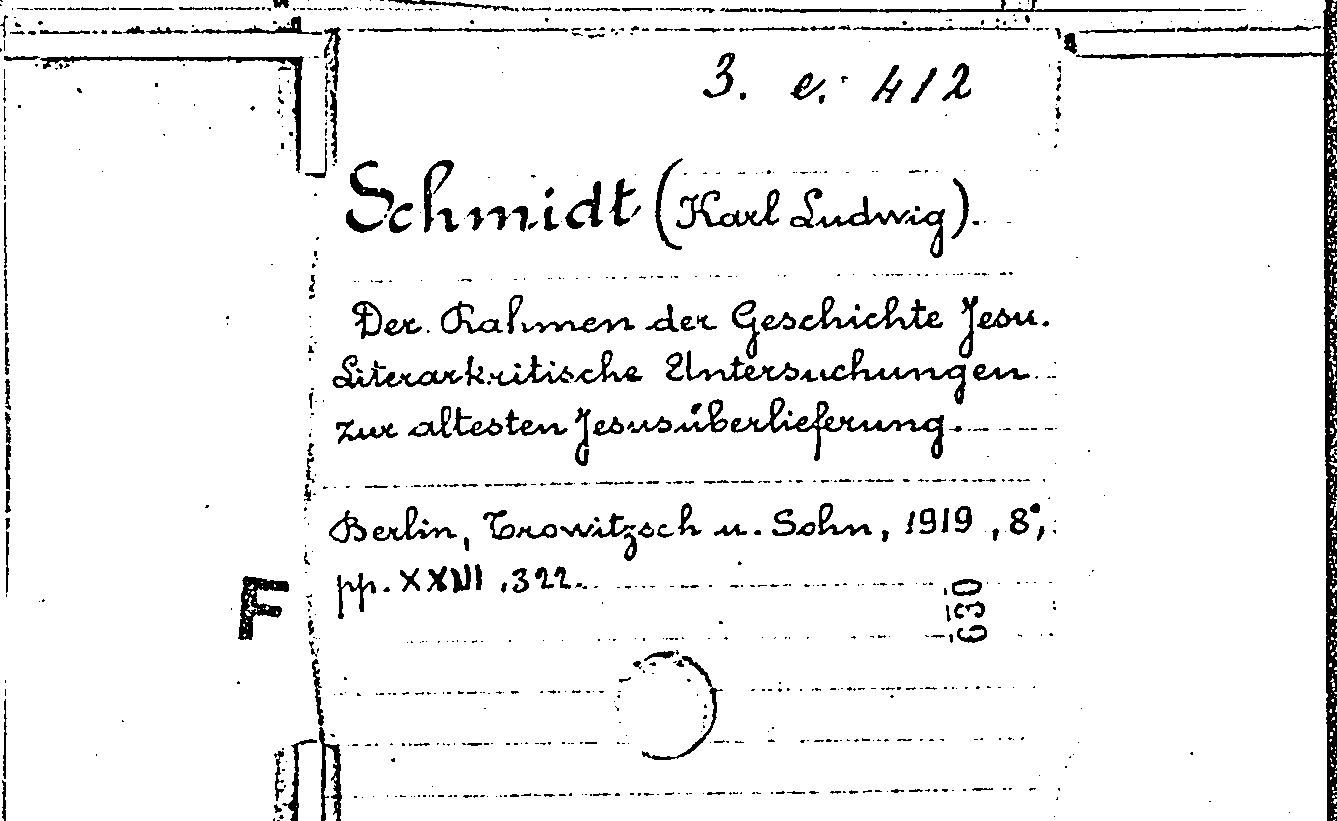 3. e. 412
Schmidt (Karl Ludwig).
Der Rahmen der Geschichte Jesu.
Literarkritische Untersuchungen
zur altesten Jesusüberlieferung.
Berlin, Trowitzsch u. Sohn, 1919, 8°,
pp. XXVIII, 322.
630
F